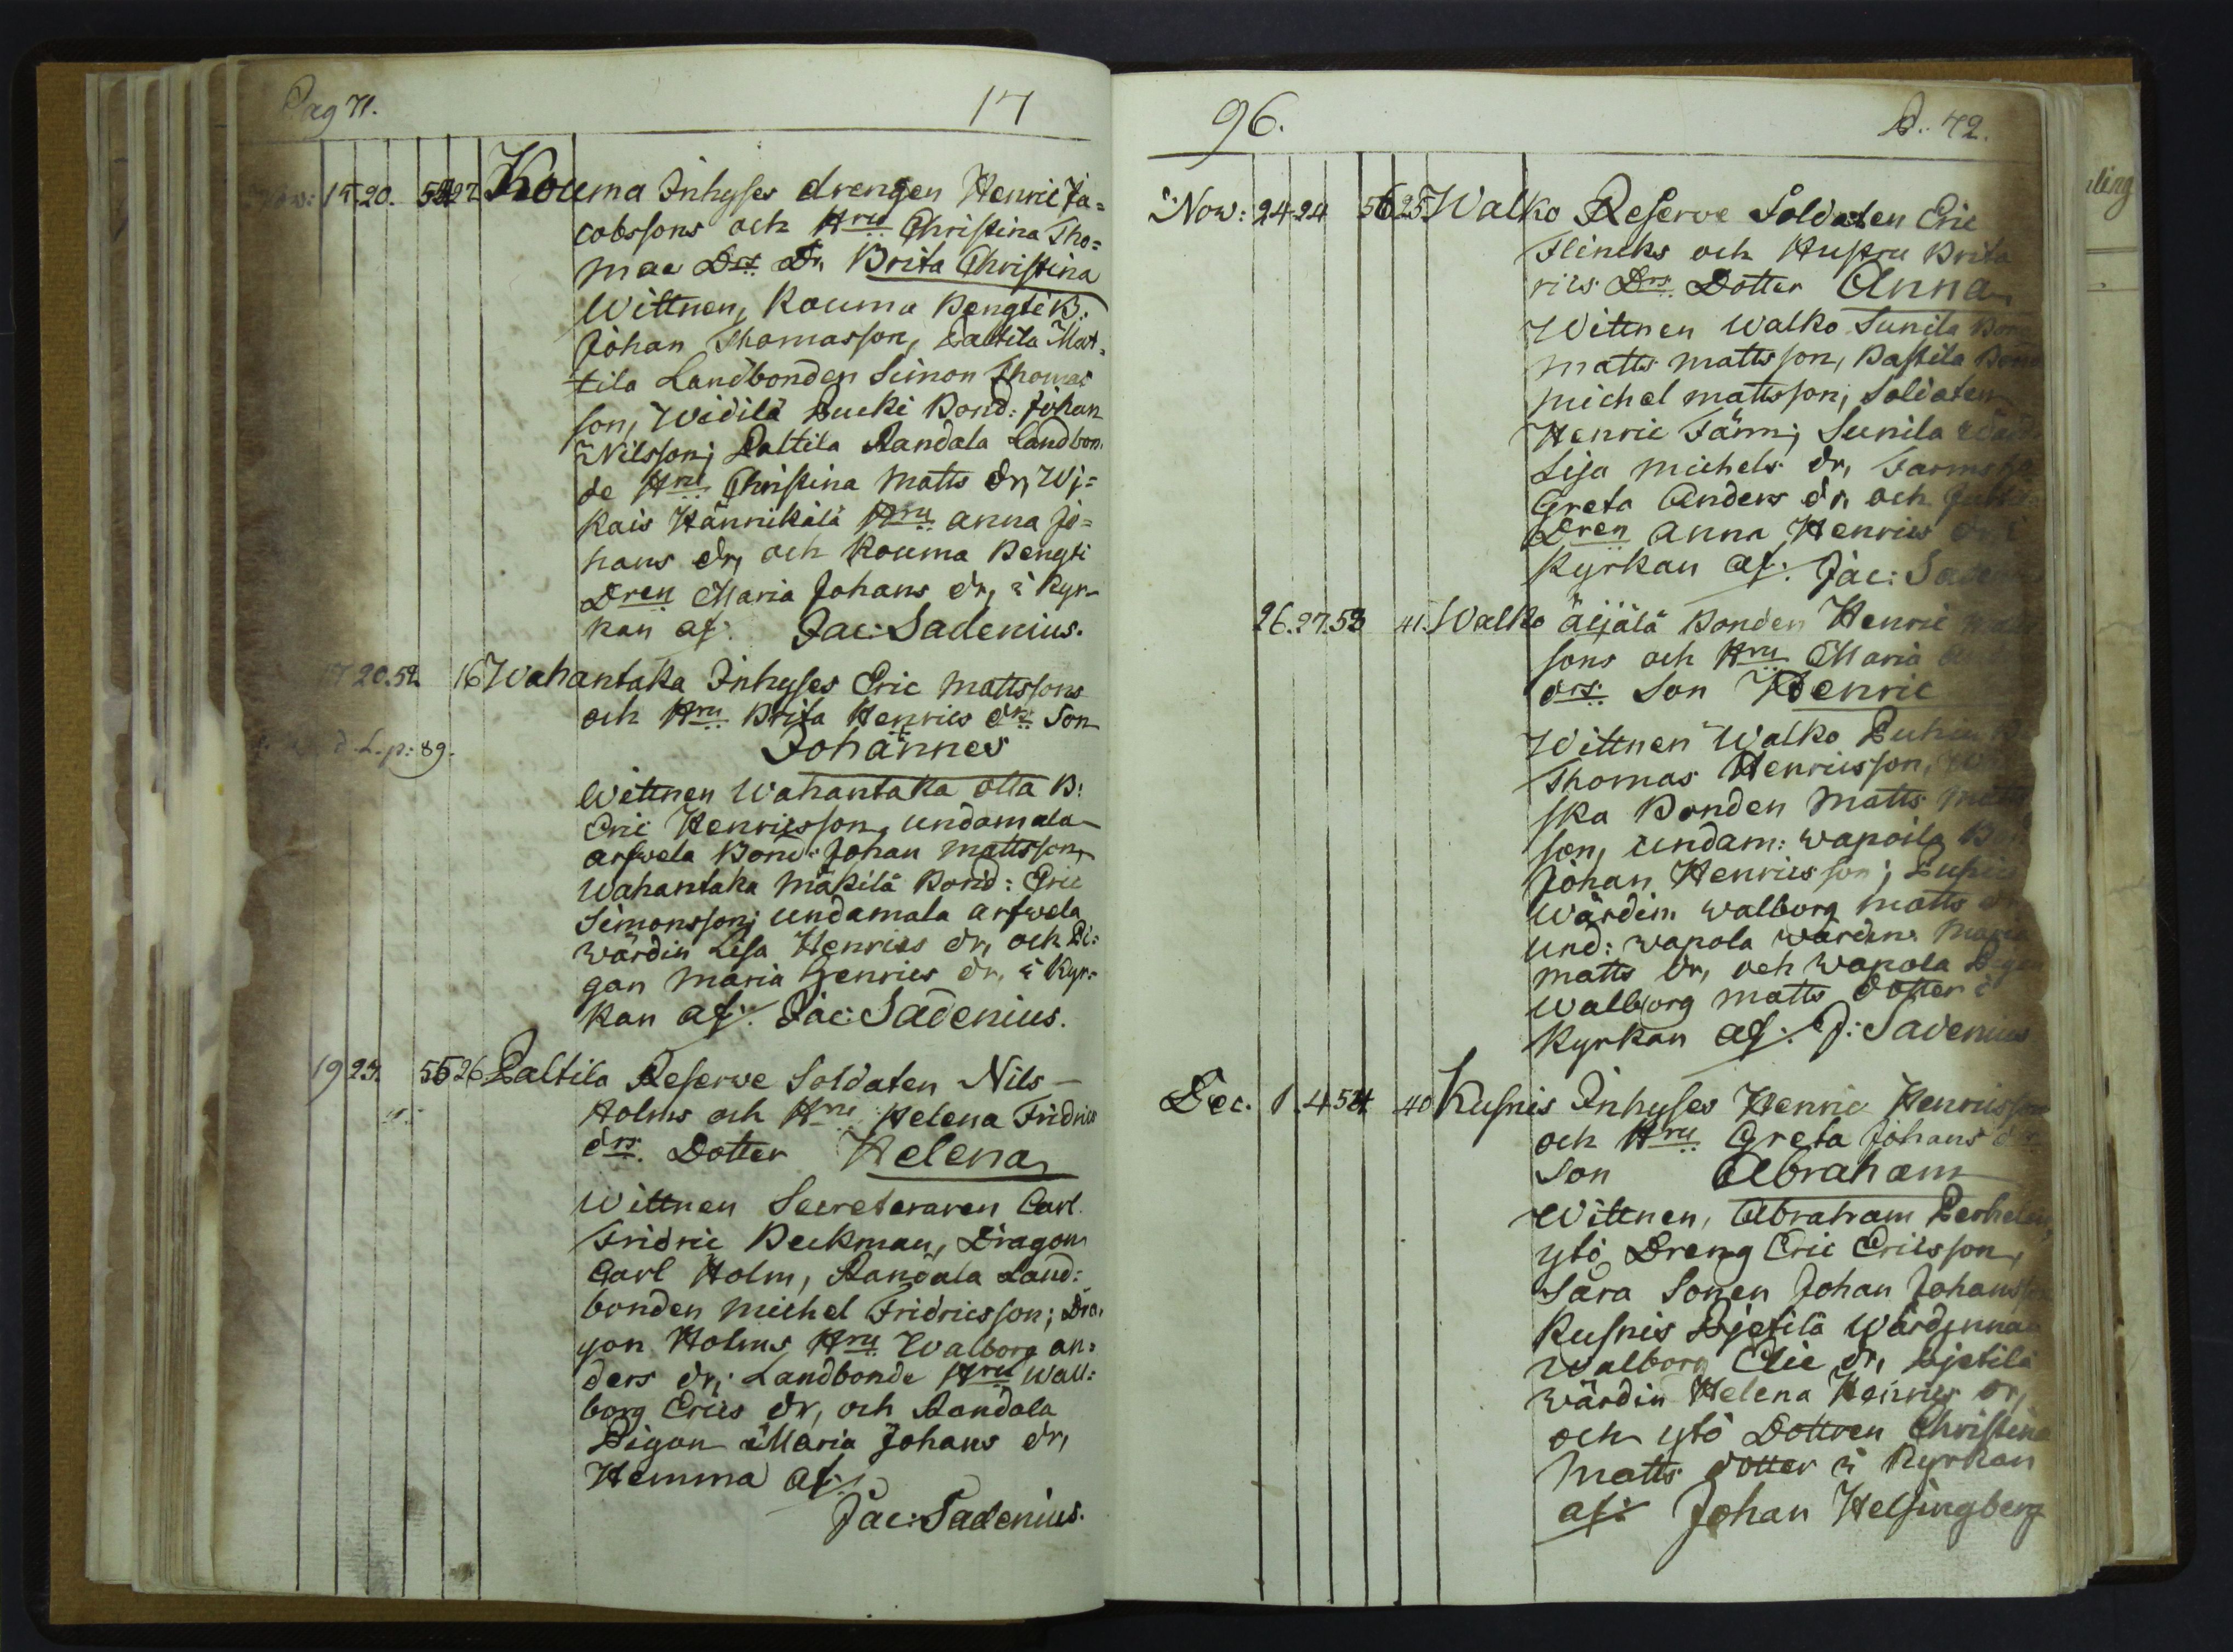 Pag 71. 17
Now: 15. 20. 54 27 Kouma Inhyses drengen Henric Ja=
cobssons och Hru Christina Tho=
mae Drs Dr, Brita Christina
Wittnen, Kouma Bengti B:
Johan Thomasson, Laltila Mat=
tila Landbonden Simon Thomas
son, Widilä Pucki Bond: Johan
Nilsson; Paltila Randala Landbon
de Hru Christina Matts dr, Wj=
kais Hännikälä Hru anna Jo=
hans dr, och Kouma Bengti
Dren Maria Johans dr, i Kyr-
kan af: Jac: Sadenius.
17 20. 52 16 Wahantaka Inhyses Eric Mattssons
och Hru Brita Henrics drs Son
d. L. p: 89. Johannes
Wittnen Wahantaka Otta B:
Eric Henricsson, undamala
arfwela Bond: Johan Mattsson,
Wahantaka Mäkilä Bond: Eric
Simonsson; undamala arfwela
wärdin Lisa Henrics dr, och Pi=
gan Maria Henrics dr, i Kyr-
kan af: Jac: Sadenius.
19 23. 55 26 Paltila Reserve Soldaten Nils
Holms och Hru Helena Fridrics
drs. Dotter Helena
Wittnen Secreteraren Carl
Fridric Beckman, Dragon
Carl Holm, Randala Land:
bonden Michel Fridricsson; Dra=
gon Holms Hru Walborg an=
ders dr; Landbonde Hru Wall:
borg Erics dr, och Randala
Pigan Maria Johans dr,
Hemma af:
Jac: Sadenius.
96. P. 72.
Now: 24 24 56 25 Walko Reserve Soldaten Eric
Flincks och Hustru Brita
rics Drs Dotter Anna
Wittnen Walko Sunila
Matts Mattsson, Bastila
Michel Mattsson, Soldaten
Henric Färm; Sunila
Lisa Michels dr, Farms
Greta Anders dr, och
Dren Anna Henrics
Kyrkan af: Jac:
26. 27. 53 41. Walko äijälä Bonden Henric
sons och Hru Maria
drs. Son Henric
Wittnen Walko
Thomas Henricsson,
ska Bonden Matts
son, undam: wapoila
Johan Henricsson;
Wärdin Walborg Matts
und: wapola wärdin
Matts dr, och wapola
Walborg Matts dotter i
Kyrkan af: J: Sadenius
Dec. 1. 4. 54 40 Kusnis Inhyses Henric Henricsson
och Hru Greta Johans
Son Abraham
Wittnen, Abraham
ytö Dreng Eric Ericsson,
Sara Sonen Johan
Kusnis Pjetilä
Walborg Eric dr, bjetilä
wärdin Helena Henrics dr,
och ytö Dottren Christina
Matts dotter i Kyrkan
af: Johan Helsingberg